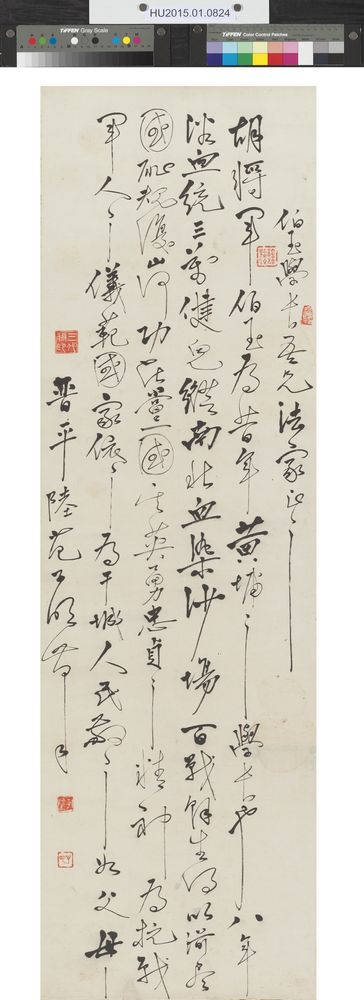 HU2015.01.0824
TIFFEN Gray Scale
TIFFEN Color Control Patches
伯玉學長吾兄法家正之
胡將軍伯玉為昔年黃埔之學長也八年
浴血統三萬健兒縱南北血染沙場百戰餘生得以滌盡
國恥光復山河功在黨國其英勇忠貞之精神為抗戰
軍人之儀範國家依之為干城人民敬之如父母
晉平陸范